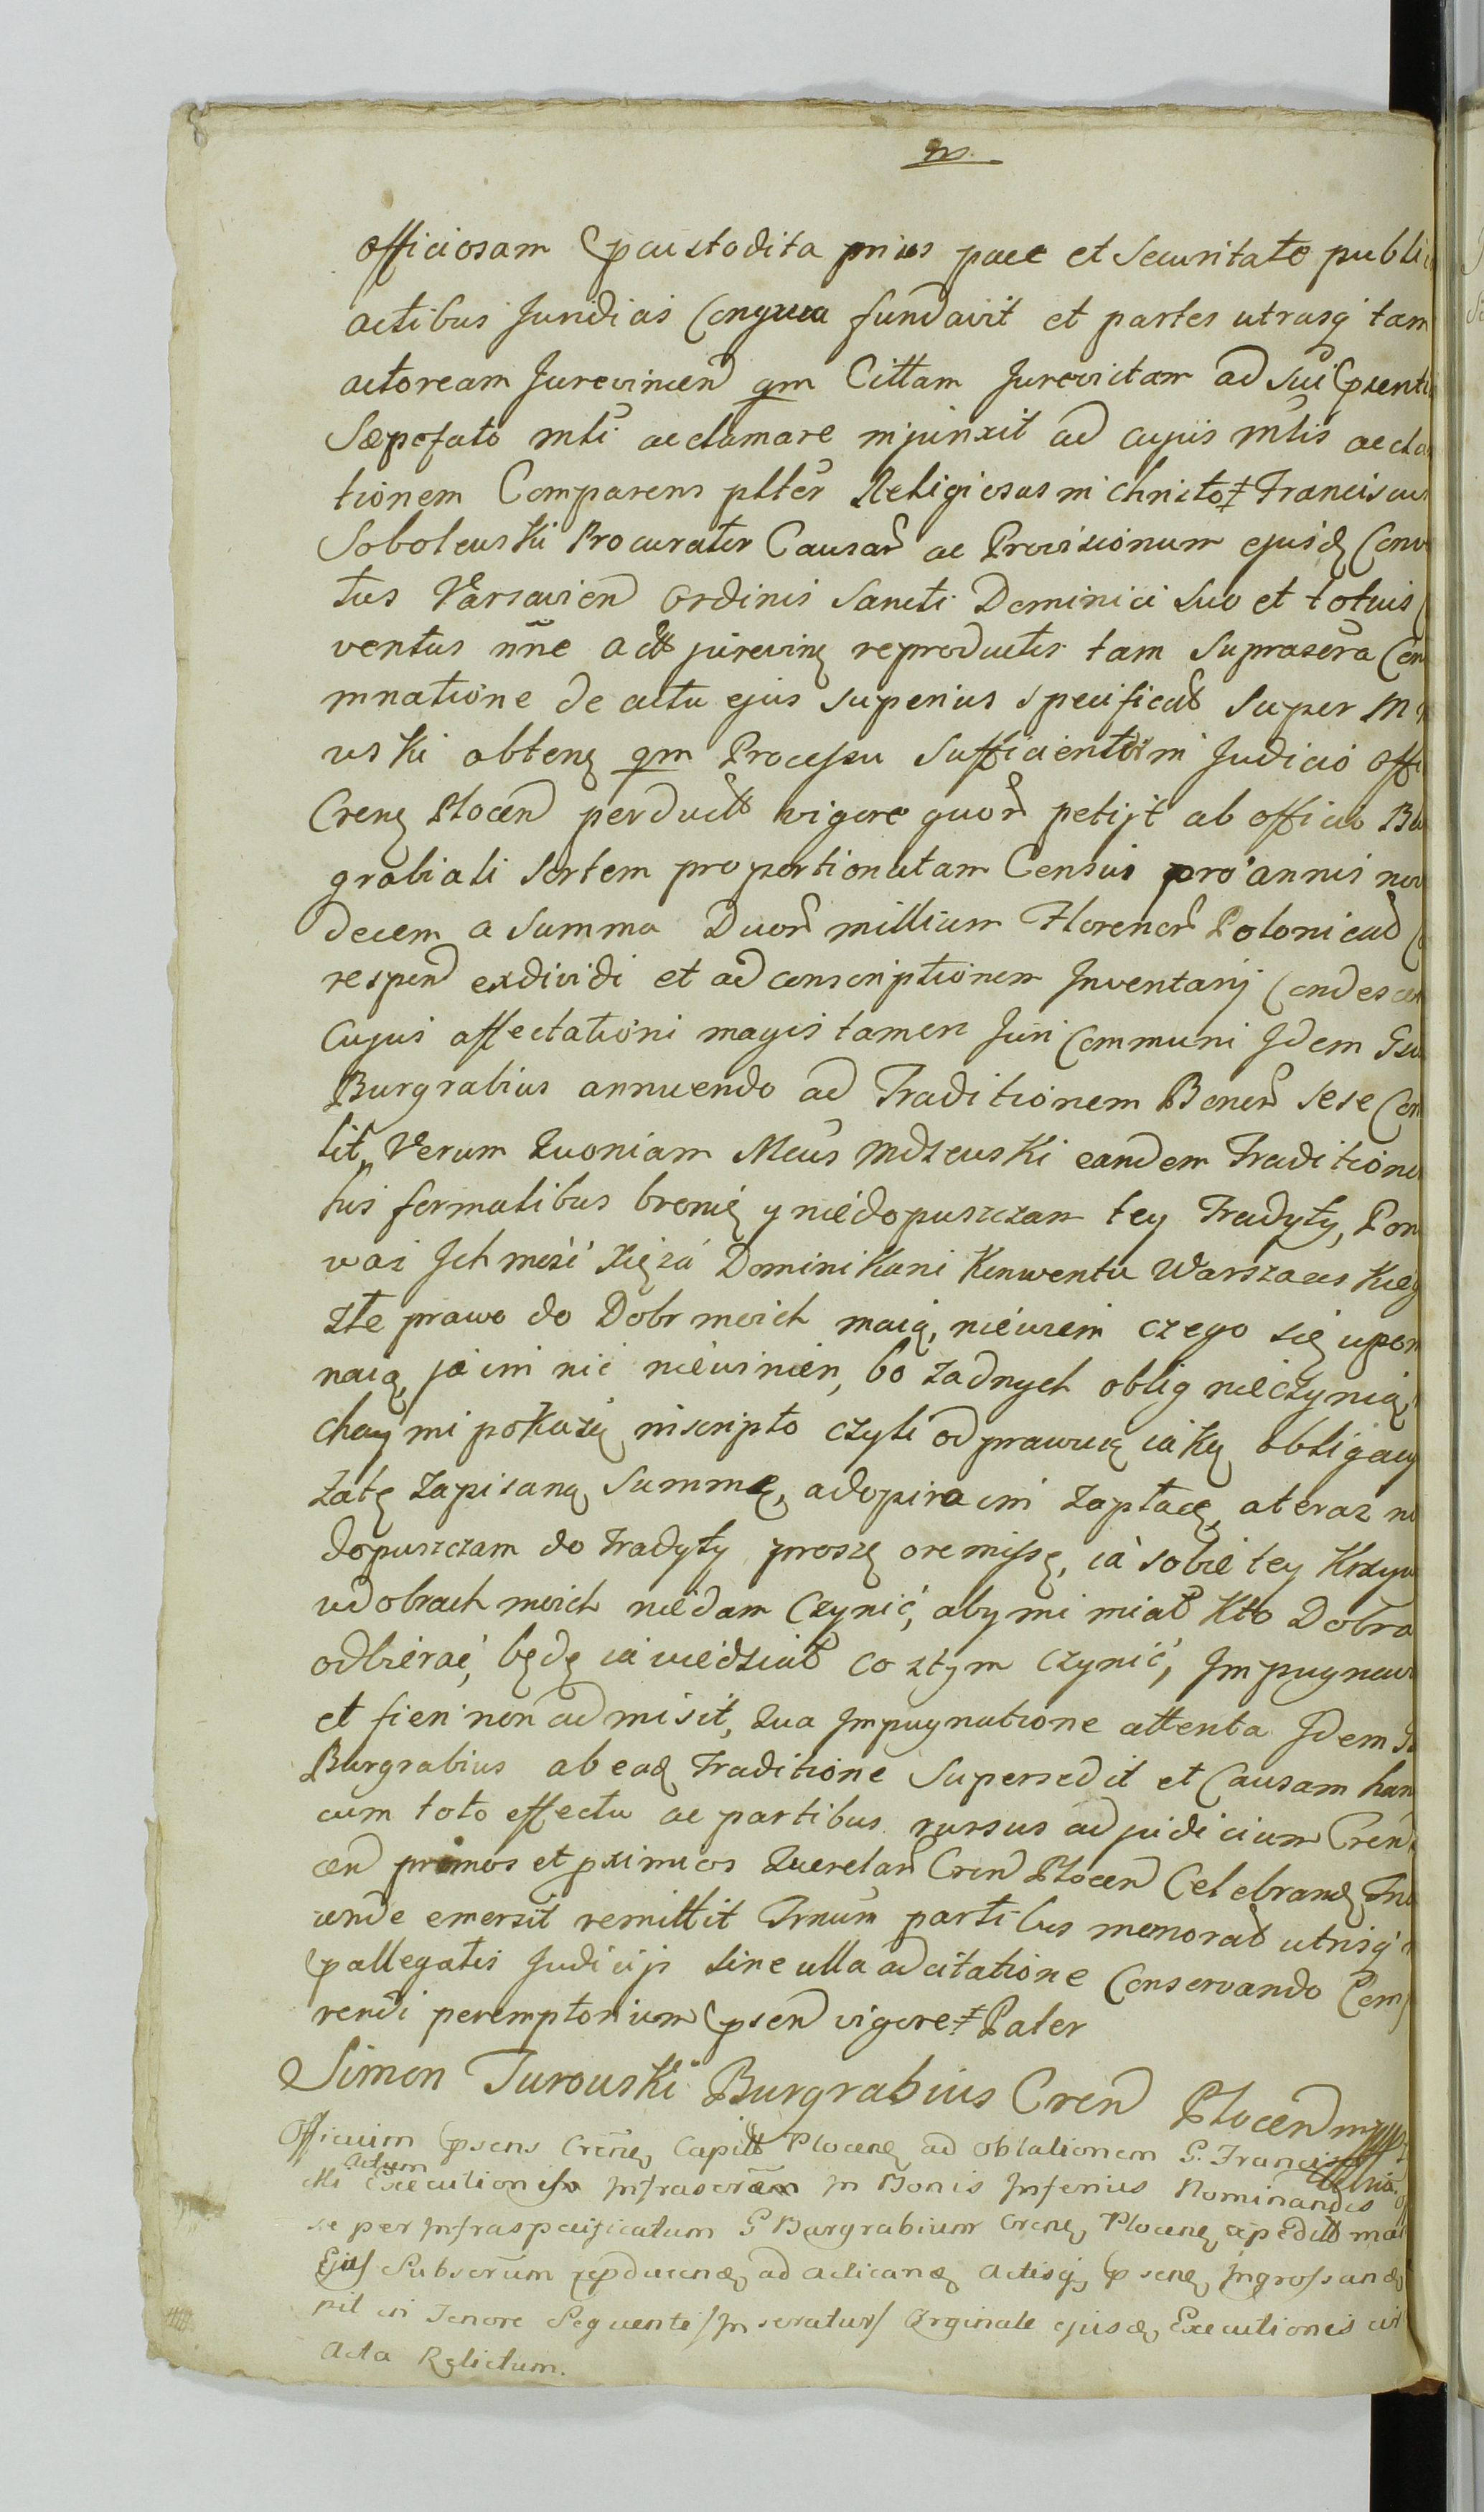 m.
officiosam p custodita prius pace et Securitate publi
actibus Juridicis Congrua fundavit et partes utrasq tam
actoream Jurevincen qm Cittam Jurevictam ad sui
Sæpefato mli acclamare injunxit ad cujus mlis accla
tionem Comparens plter Religiosus in Christo ‡ Franciscus
Soboleuski Procurator Causar ac Provisionum ejusd Conv
tus Varsavien Ordinis Sancti Dominici Suo et totius
ventus nne act jurevin reproductis tam Suprascra Con
mnatione de actu ejus superius specificat Super M
uski obten qm Processu Sufficienter in Judicio Offi
Cren Plocen perduct vigore quor petijt ab officio Bu
grabiali Sortem proportionatam Census pro annis nov
decem a Summa Duor millium Florenor Polonical
respen exdividi et ad conscriptionem Inventarij Condescen
Cujus affectationi magis tamen Juri Communi Idem Gsu
Burgrabius annuendo ad Traditionem Bonor sese Con
lit, Verum Quoniam Mcus Mdzeuski eandem Traditione
his formalibus bronię y niedopuszczam tey Tradyty, Pon
waz Jch mość Xięza Dominikani Konwentu Warszawskieg
złe prawo do Dobr moich maią, niewiem czego się upom
naią, ja im nic niewinien, bo zadnych oblig nieczynią,
chay mi pokazę inscripto czyli odprawuią iaką obligacy
zatę zapisaną Summę, adopiro im zapłacę, ateraz ni
dopuszczam do tradyty yproszę oremissę, ia sobie tey Krzyw
w dobrach moich niedam Czynić, aby mi miał Kto Dobra
odbierać, będę ia wiedział co ztym czynić, Impugnavi
et fieri non admisit, Qua Impugnatione attenta Idem
Burgrabius ab ead Traditione Supersedit et Causam han
cum toto effectu ac partibus rursus ad judicium Cren
cen primos et pximios Querelar Cren Plocen Celebrand
unde emersit remittit Trnum partibus memorat utrisq
pallegatis Judicijs sine ulla adcitatione Conservando Com
rendi peremptorium psen vigore ‡ Pater
Simon Turouski Burgrabius Cren Plocen mpp
Officium psens Crene Capitt Plocene ad oblationem G. Francis
Actum
ski Executionis Infrascrem In Bonis Inferius Nominandis
se per Infraspecificatum G Burgrabium Crene Plocene expeditt ma
Ejus Subscrum repducend ad acticand actisq psene Ingrossand
pit cui Tenore Sequente / Inseratur / Orginale ejusd Executionis
Acta Relictum.